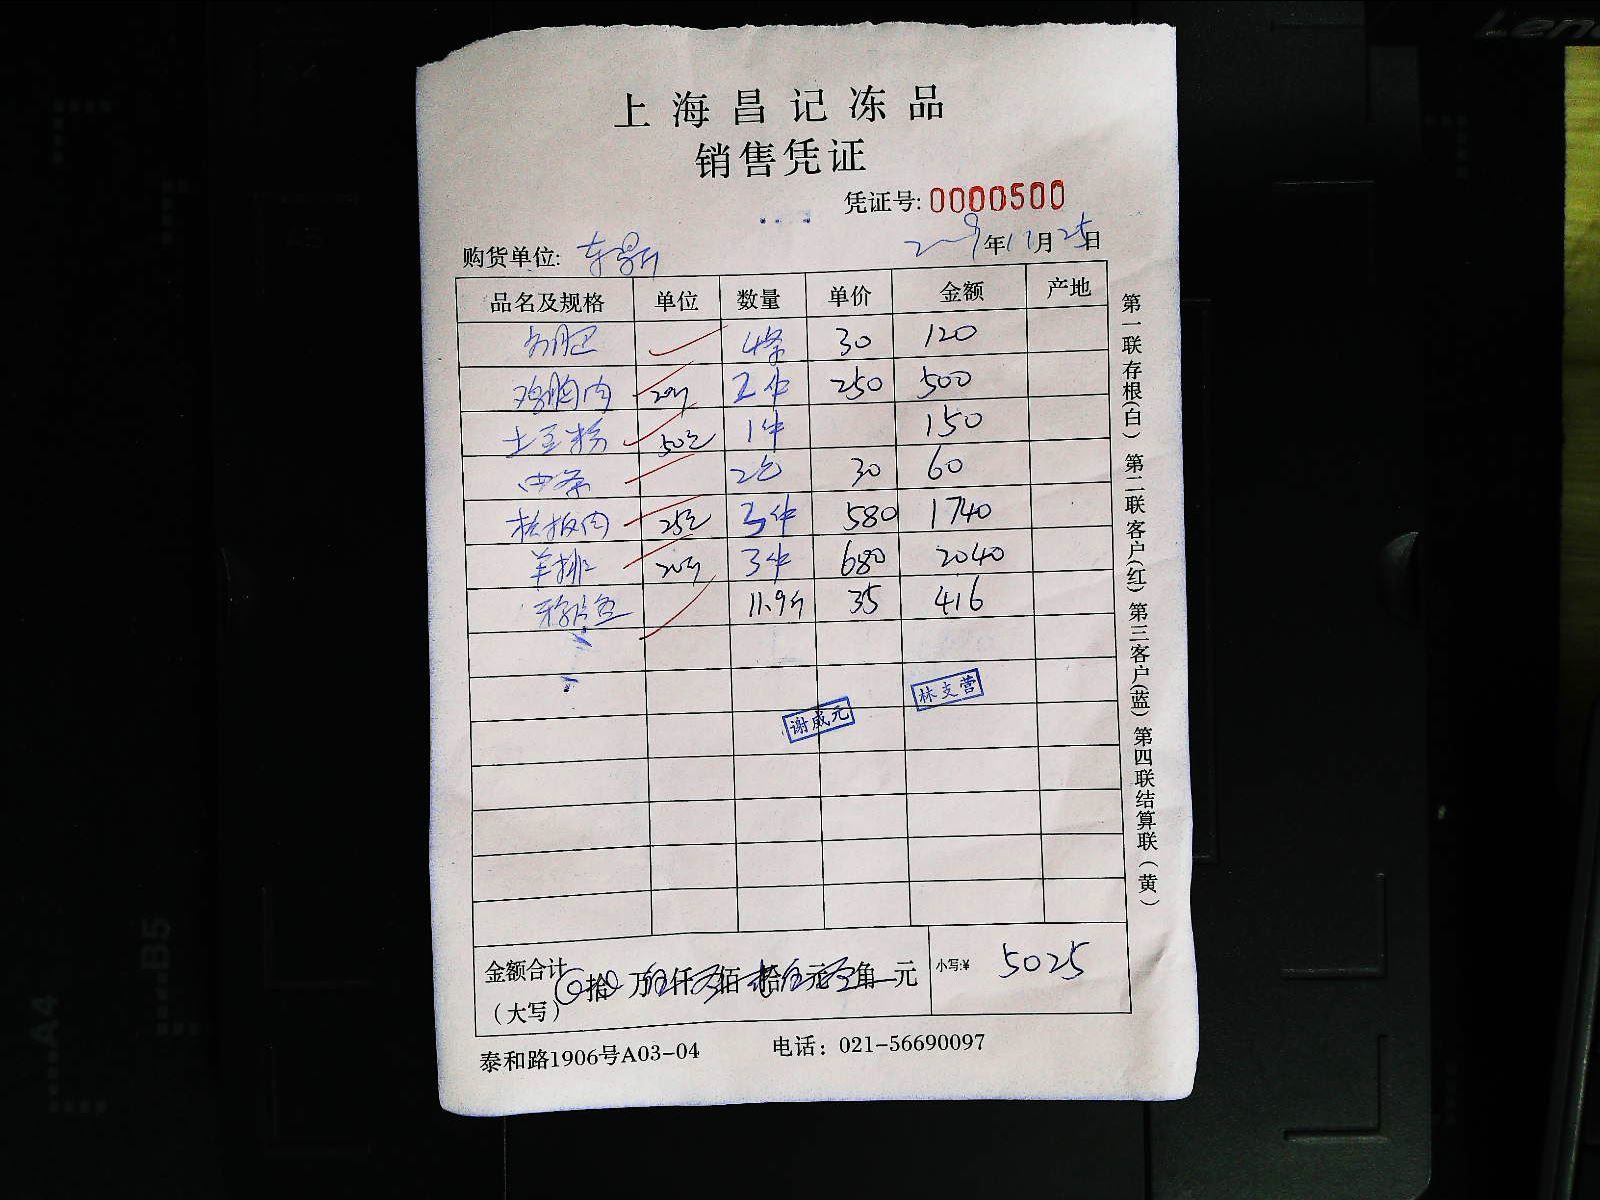 上海昌记冻品
销售凭证
凭证号: 0000500
购货单位: 年11月25日
品名及规格 单位 数量 单价 金额 产地
4条 30 120
鸡胸肉 20斤 2件 250 500
土豆粉 50包 1件 150
2包 30 60
25包 3件 580 1740
羊排 20斤 3件 680 2040
鱼 11.9斤 35 416
谢威元
林支营
金额合计 拾 万 仟 佰 拾 元 角 元 小写:¥ 5025
(大写)
泰和路1906号A03-04 电话：021-56690097
第一联存根(白) 第二联客户(红) 第三客户(蓝) 第四联结算联(黄)